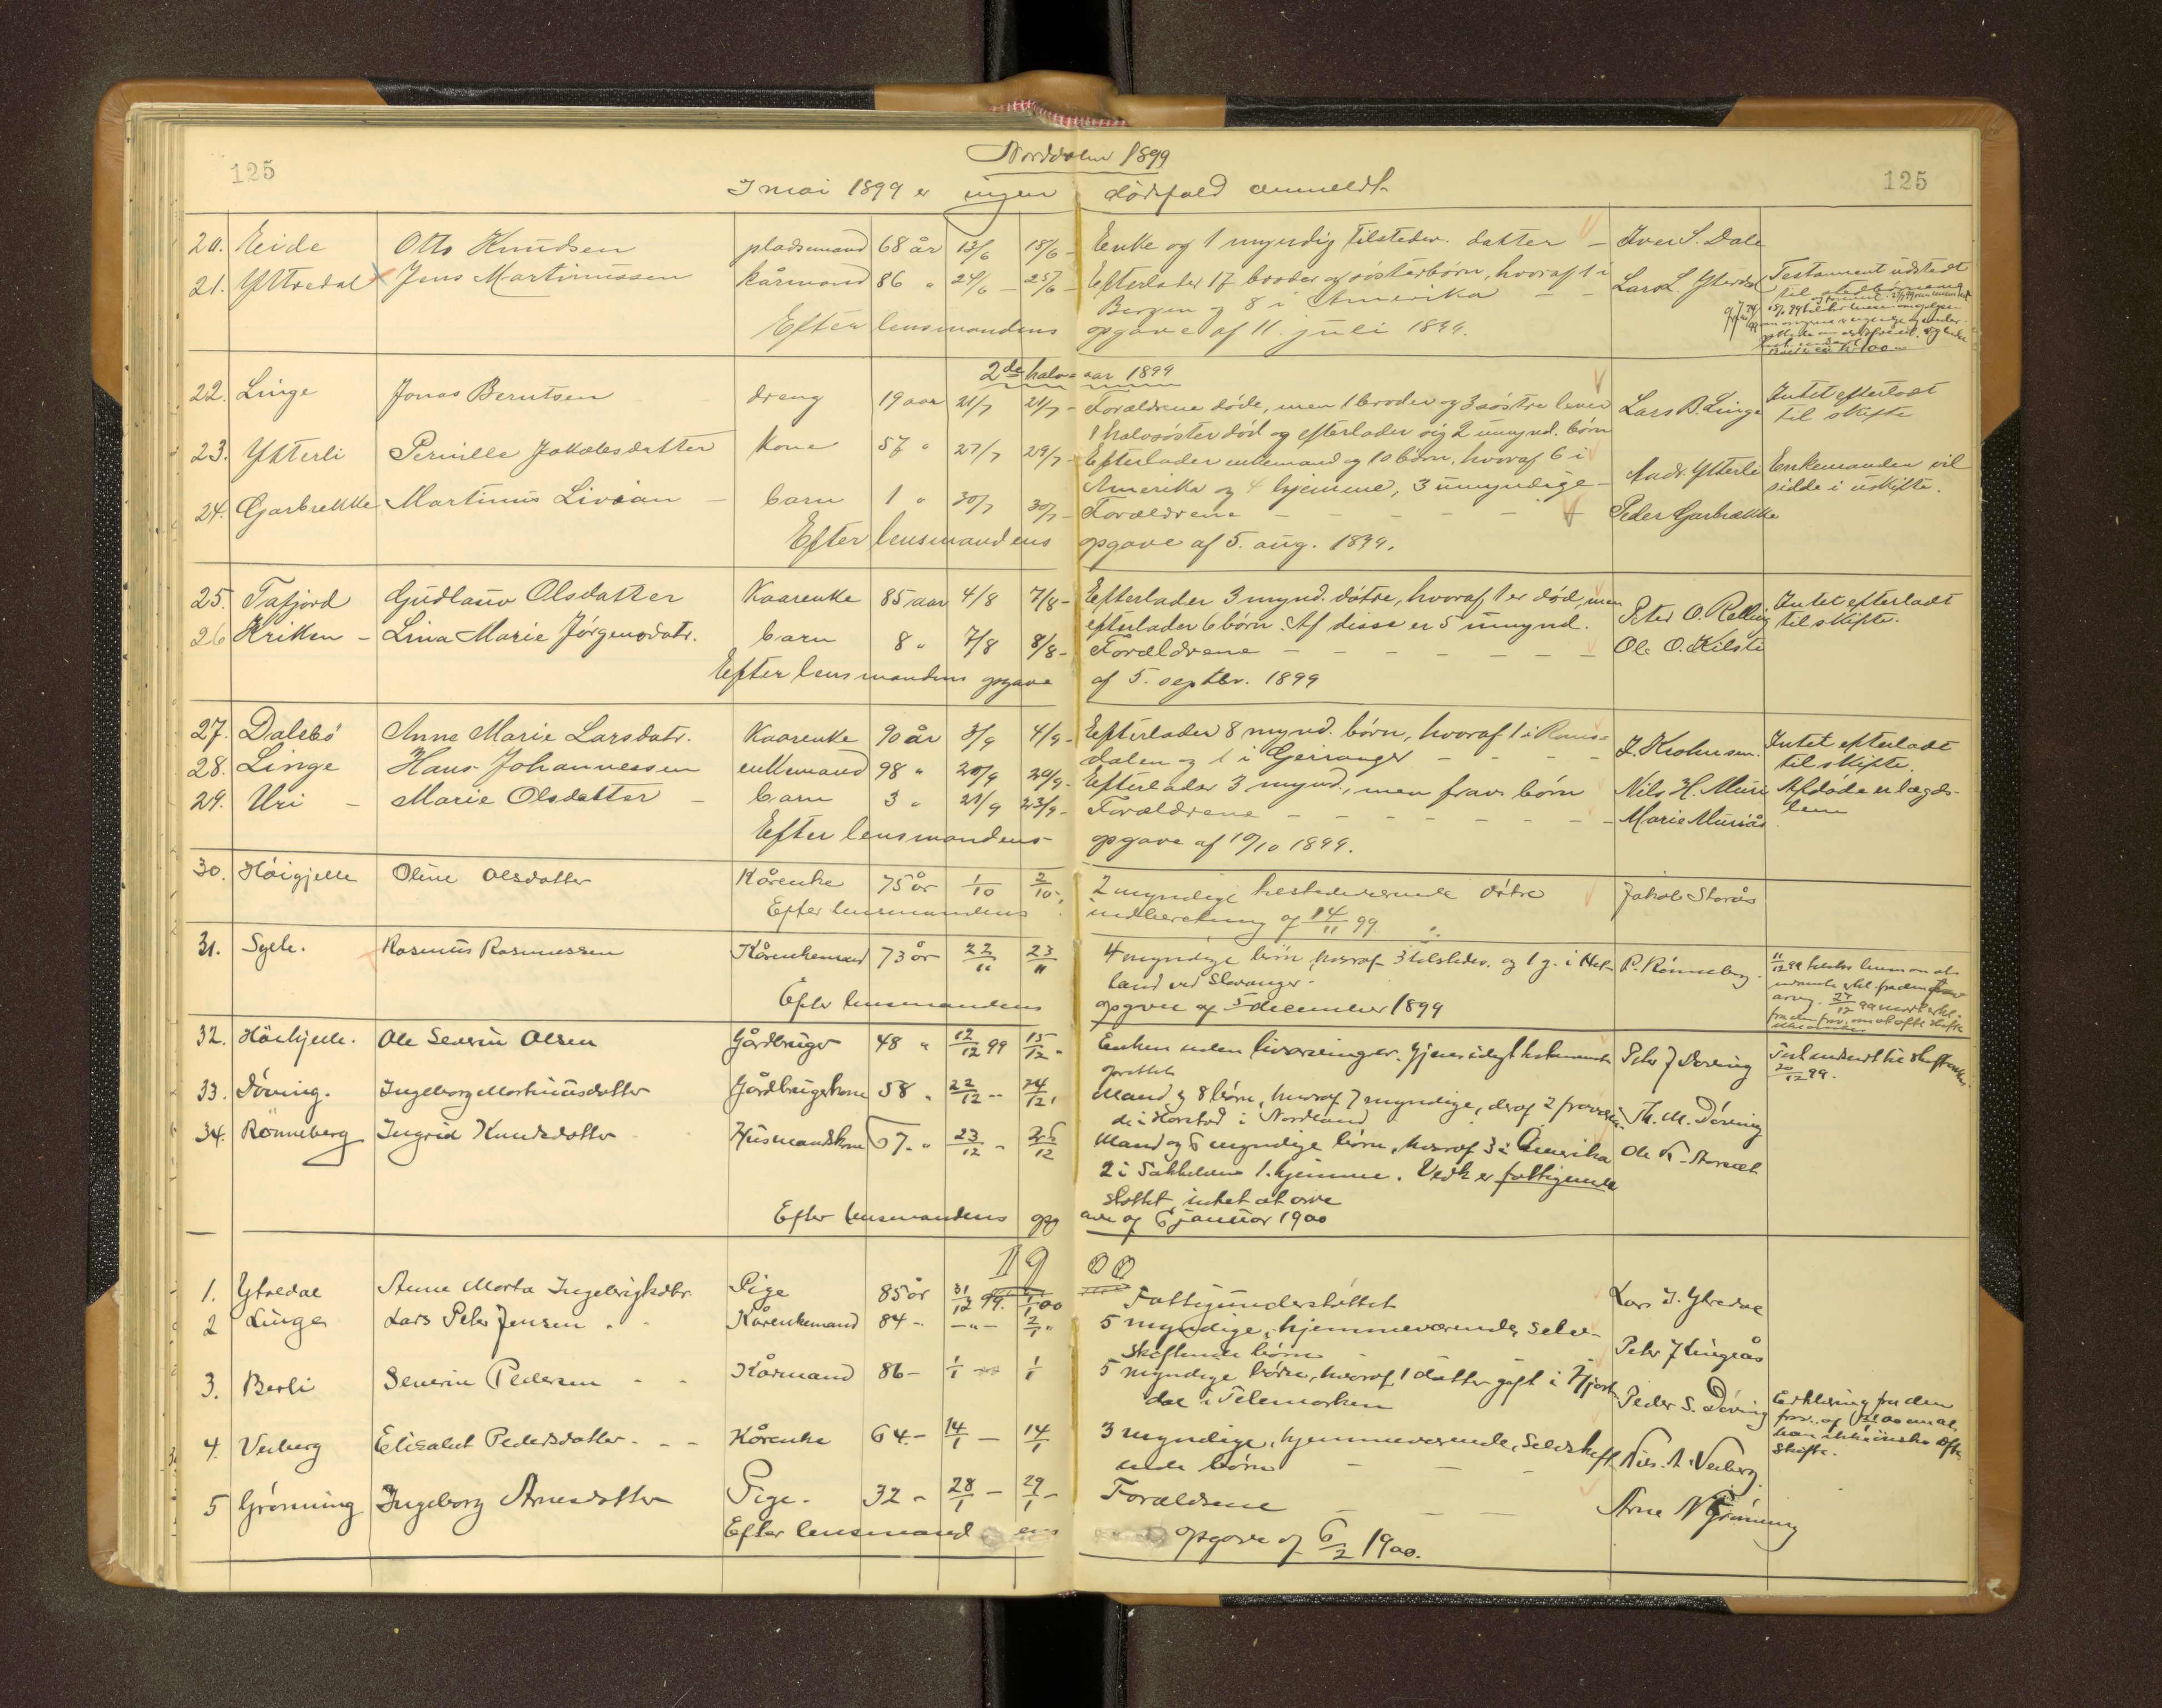 125
Norddalen 1899
125
I mai 1899 er ingen dødsfald anmeldt
20. Eide Otto Knudsen pladsmand 68 år 13/6 18/6 - Enke og 1 myndig tilstedev. datter - Iver S. Dale
21. Yttredal Jens Martinussen kårmand 86 " 24/6 - 25/6 - Efterlader 17 broder og søsterbørn, hvoraf 1 i Lars L. Yterdal Testament udstedt
Bergen og 8 i Amerika - - til
Efter lensmandens opgave af 11. juli 1899.
2de halvaar 1899
22. Linge Jonas Berntsen dreng 19 aar 21/7 21/7 - Forældrene døde, men 1 broder og 3 søstre lever Lars B. Linge Intet efterladt
1 halvsøster død og efterlader sig 2 umynd. børn til skifte
23. Ytterli Pernille Jakobsdatter kone 57 " 27/7 29/7 - Efterlader enkemand og 10 børn, hvoraf 6 i Andr. Ytterli Enkemanden vil
Amerika og 4 hjemme, 3 umyndige - sidde i uskifte.
24. Garbrekke Martinus Livian - barn 1 " 30/7 30/7 - Forældrene - - - - - Peder Garbrække
Efter lensmandens opgave af 5. aug. 1899.
25. Tafjord Gudlauv Olsdatter Kaarenke 85 aar 4/8 7/8 - Efterlader 3 mynd. døtre, hvoraf 1 er død, men Peter O. Relling Intet efterladt
efterlader 6 børn. Af disse er 5 umynd. til skifte.
26 Kriken - Lina Marie Jørgensdatr. barn 8 " 7/8 8/8 - Forældrene - - - - - - - Ole O. Kilsti
Efter lensmandens opgave af 5. septbr. 1899
27. Dalsbø Anne Marie Larsdatr. Kaarenke 90 år 3/9 4/9 - Efterlader 8 mynd. børn, hvoraf 1 i Roms- J. Krohn sen. Intet efterladt
dalen og 1 i Geiranger - - - - til skifte.
28. Linge Hans Johannessen enkemand 98 " 20/9 20/9 - Efterlader 3 mynd., men frav. børn Nils H. Muri Afdøde er lægds-
29. Uri - Marie Olsdatter - barn 3 " 21/9 23/9 - Forældrene - - - - - - - Marie Muriås lem
Efter lensmandens opgave af 10/10 1899.
30. Høigjelle Oline Olsdatter Kårenke 75 år 1/10 2/10 - 2 myndige tilstedeværende døtre Jakob Storås
Efter lensmandens indberetning af 14/11 99.
31. Sylte. Rasmus Rasmussen Kårenkemand 73 år 22/11 23/11 4 myndige børn hvoraf 3 tilstedev. og 1 g. i Het- P. Rønneberg 11/12 99
land ved Stavanger -
Efter lensmandens opgave af 5 december 1899
32. Høikjelle. Ole Severin Olsen Gårdbruger 48 " 12/12 99 15/12 " Enken uden livsarvinger. Gjensidigt testamente Peter J Døving
oprettet 20/12 99.
33. Døving. Ingeborg Martinusdatter Gårdbrugerkone 58 " 22/12 -- 24/12 . Mand og 8 børn, hvoraf 7 myndige, deraf 2 fraværen- Th. M. Døving
de i Harstad i Nordland
34. Rønneberg Ingrid Knudsdatter Husmandskone 67. " 23/12 - 26/12 Mand og 6 myndige børn, hvoraf 3 i Amerika Ole K. Storsæt
2 i Søkkelven 1. hjemme. Vedk er fattigunder
støttet, intet at arve
Efter lensmandens opgave af 6 januar 1900
1900
1. Ytredal Anne Marta Ingebrigtsdtr. Pige 85 år 31/12 99. 1/1 00 Fattigunderstøttet Lars J. Ytredal
2 Linge Lars Peter Jensen . - Kårenkemand 84 - -"- 2/1 " 5 myndige, hjemmeværende, selv- Peter J Lingeås
skiftende børn
3. Berli Severin Pedersen - - Kårmand 86 - 1/1 1/1 5 myndige børn, hvoraf 1 datter gift i Hjart- Peder S. Døving Erklæring fra den
dal i Telemarken
4. Veiberg Elisabet Pedersdatter - - - Kårenke 64 - 14/1 - 14/1 3 myndige, hjemmeværende, selvskift- Nils. A. Veiberg skifte.
ende børn - - -
5 Grønning Ingeborg Arnesdatter Pige - 32 - 28/1 - 29/1 - Forældrene - - - Arne N Grønning
Efter lensmandens opgave af 6/2 1900.